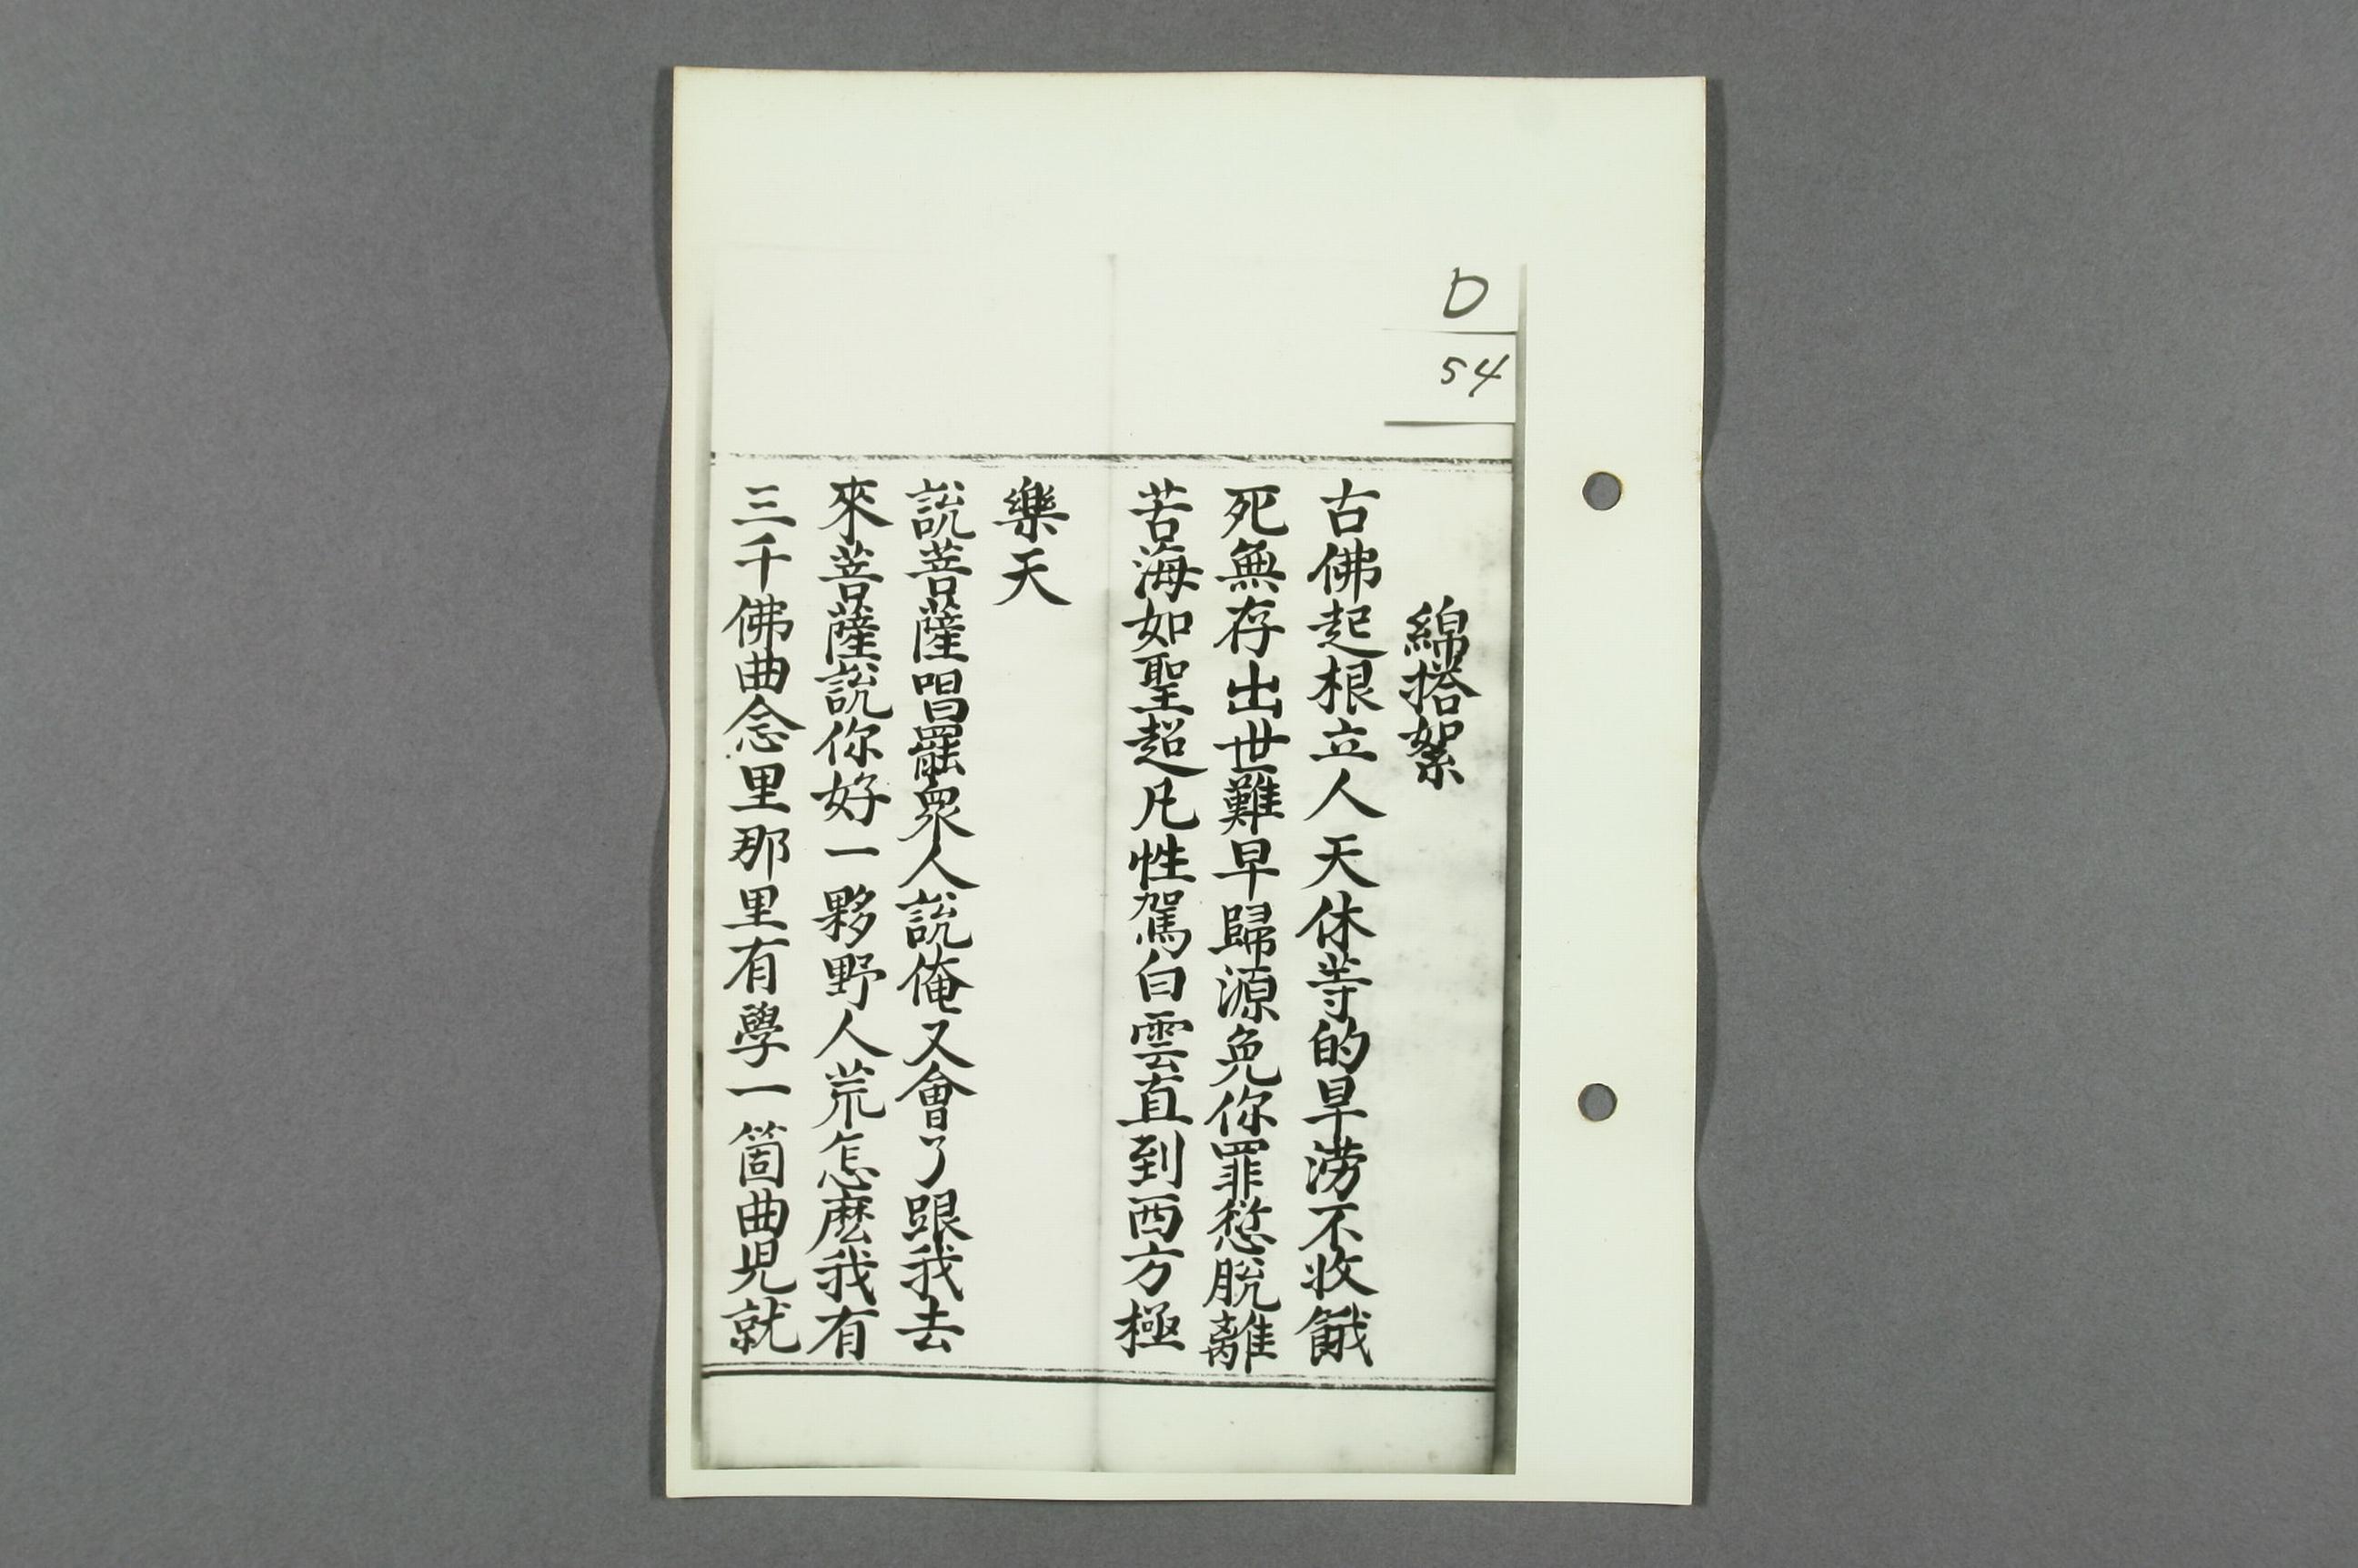 D
54
綿搭絮
古佛起根立人天休等的旱澇不收餓
死無存出世難早歸源免你罪愆脫離
苦海如聖超凡性駕白雲直到西方極
樂天
說菩薩唱罷衆人說俺又會了跟我去
來菩薩說你好一夥野人荒怎麽我有
三千佛曲念里那里有學一箇曲兒就